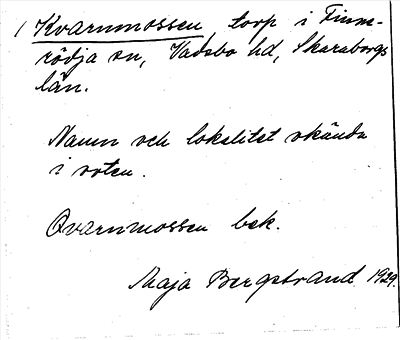 / Kvarnmossen, torp i Finne-
rödja sn, Vadsbo hd, Skaraborgs
län.
Namn och lokalitet okända
i roten.
Qvarnmossen bek.
Maja Bergstrand 1929.